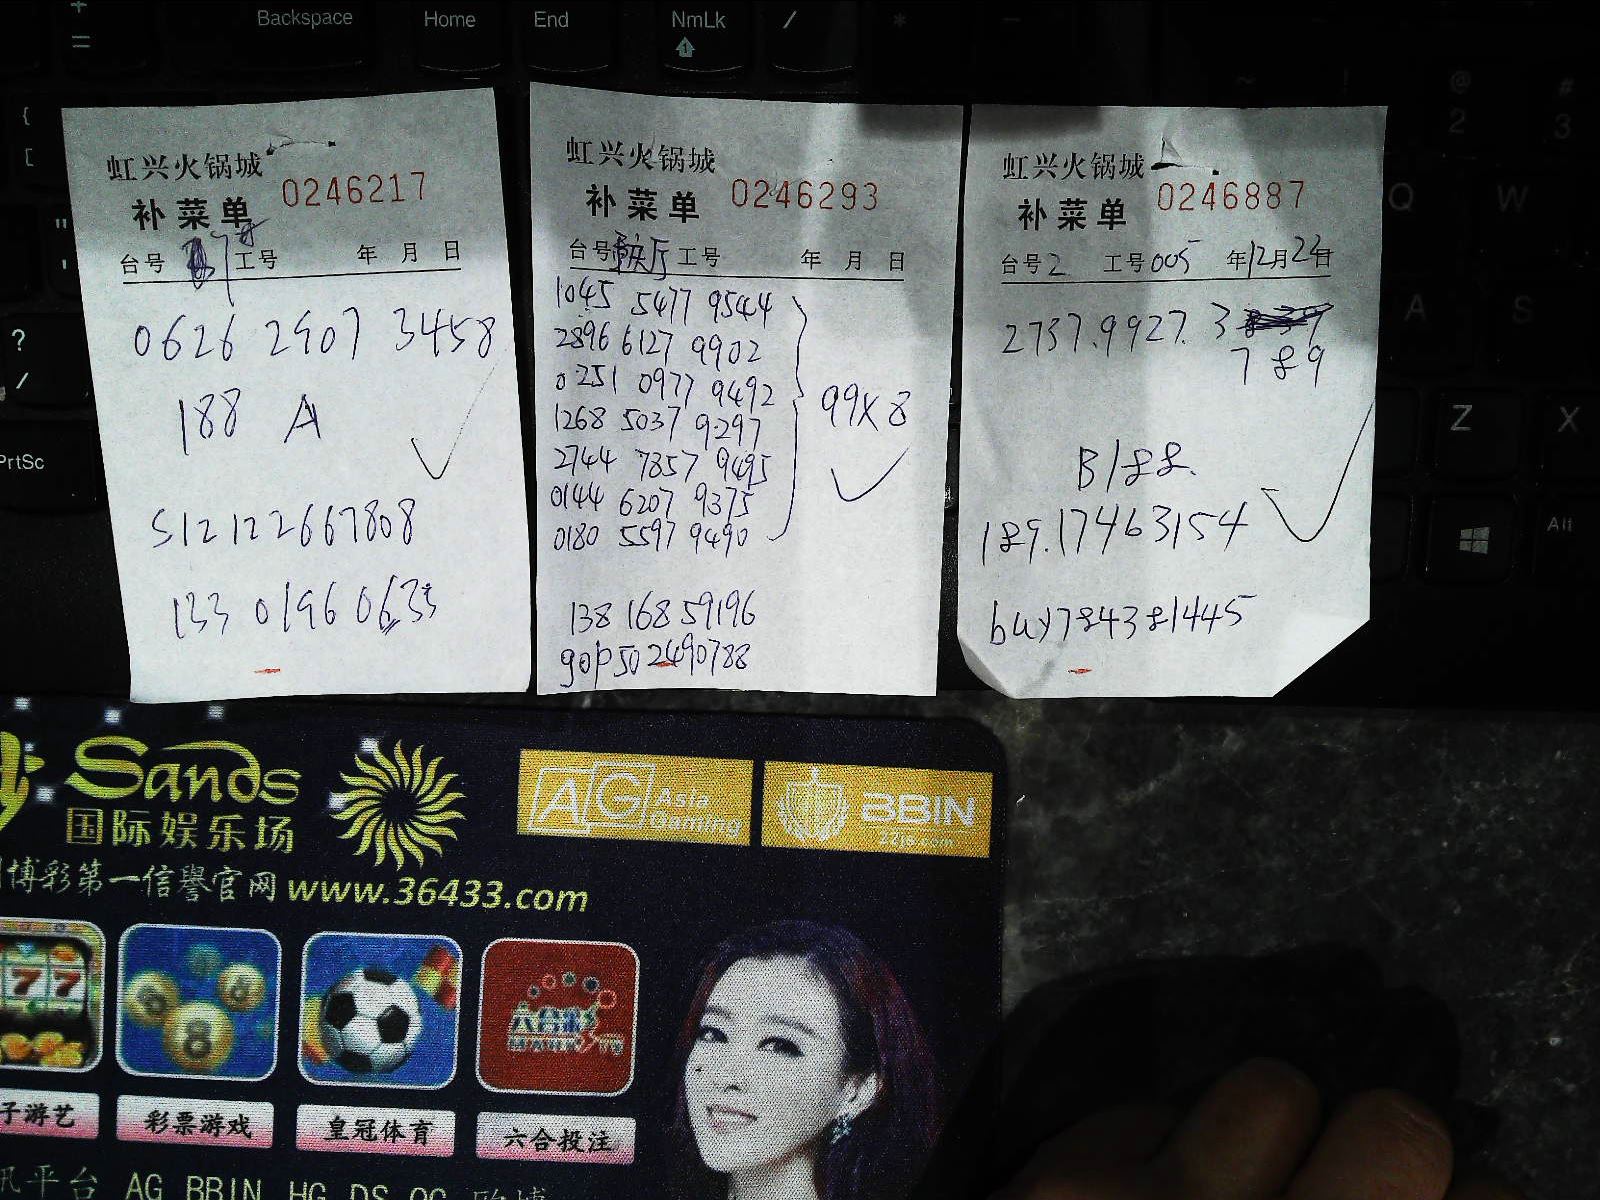 Backspace
Home
End
NmLk
/
PrtSc
Q
W
A
S
Z
X
Alt
虹兴火锅城
补菜单 0246217
台号 工号 年 月 日
0626 2907 3458
188 A
512122667808
133 0196 0633
虹兴火锅城
补菜单 0246293
台号 工号 年 月 日
1045 5477 9544
2896 6127 9902
0251 0977 9492
1268 5037 9297
2744 7857 9495
0144 6207 9375
0180 5597 9490
99X8
138 168 59196
gop502490788
虹兴火锅城
补菜单 0246887
台号 2 工号 005 年 12 月 22 日
2737.9927. 3
789
B188.
189.17463154
buy784381445
Sands
国际娱乐场
AG Asia Gaming
BBIN
博彩第一信誉官网 www.36433.com
子游艺
彩票游戏
皇冠体育
六合投注
平台 AG BBIN HG DS OG